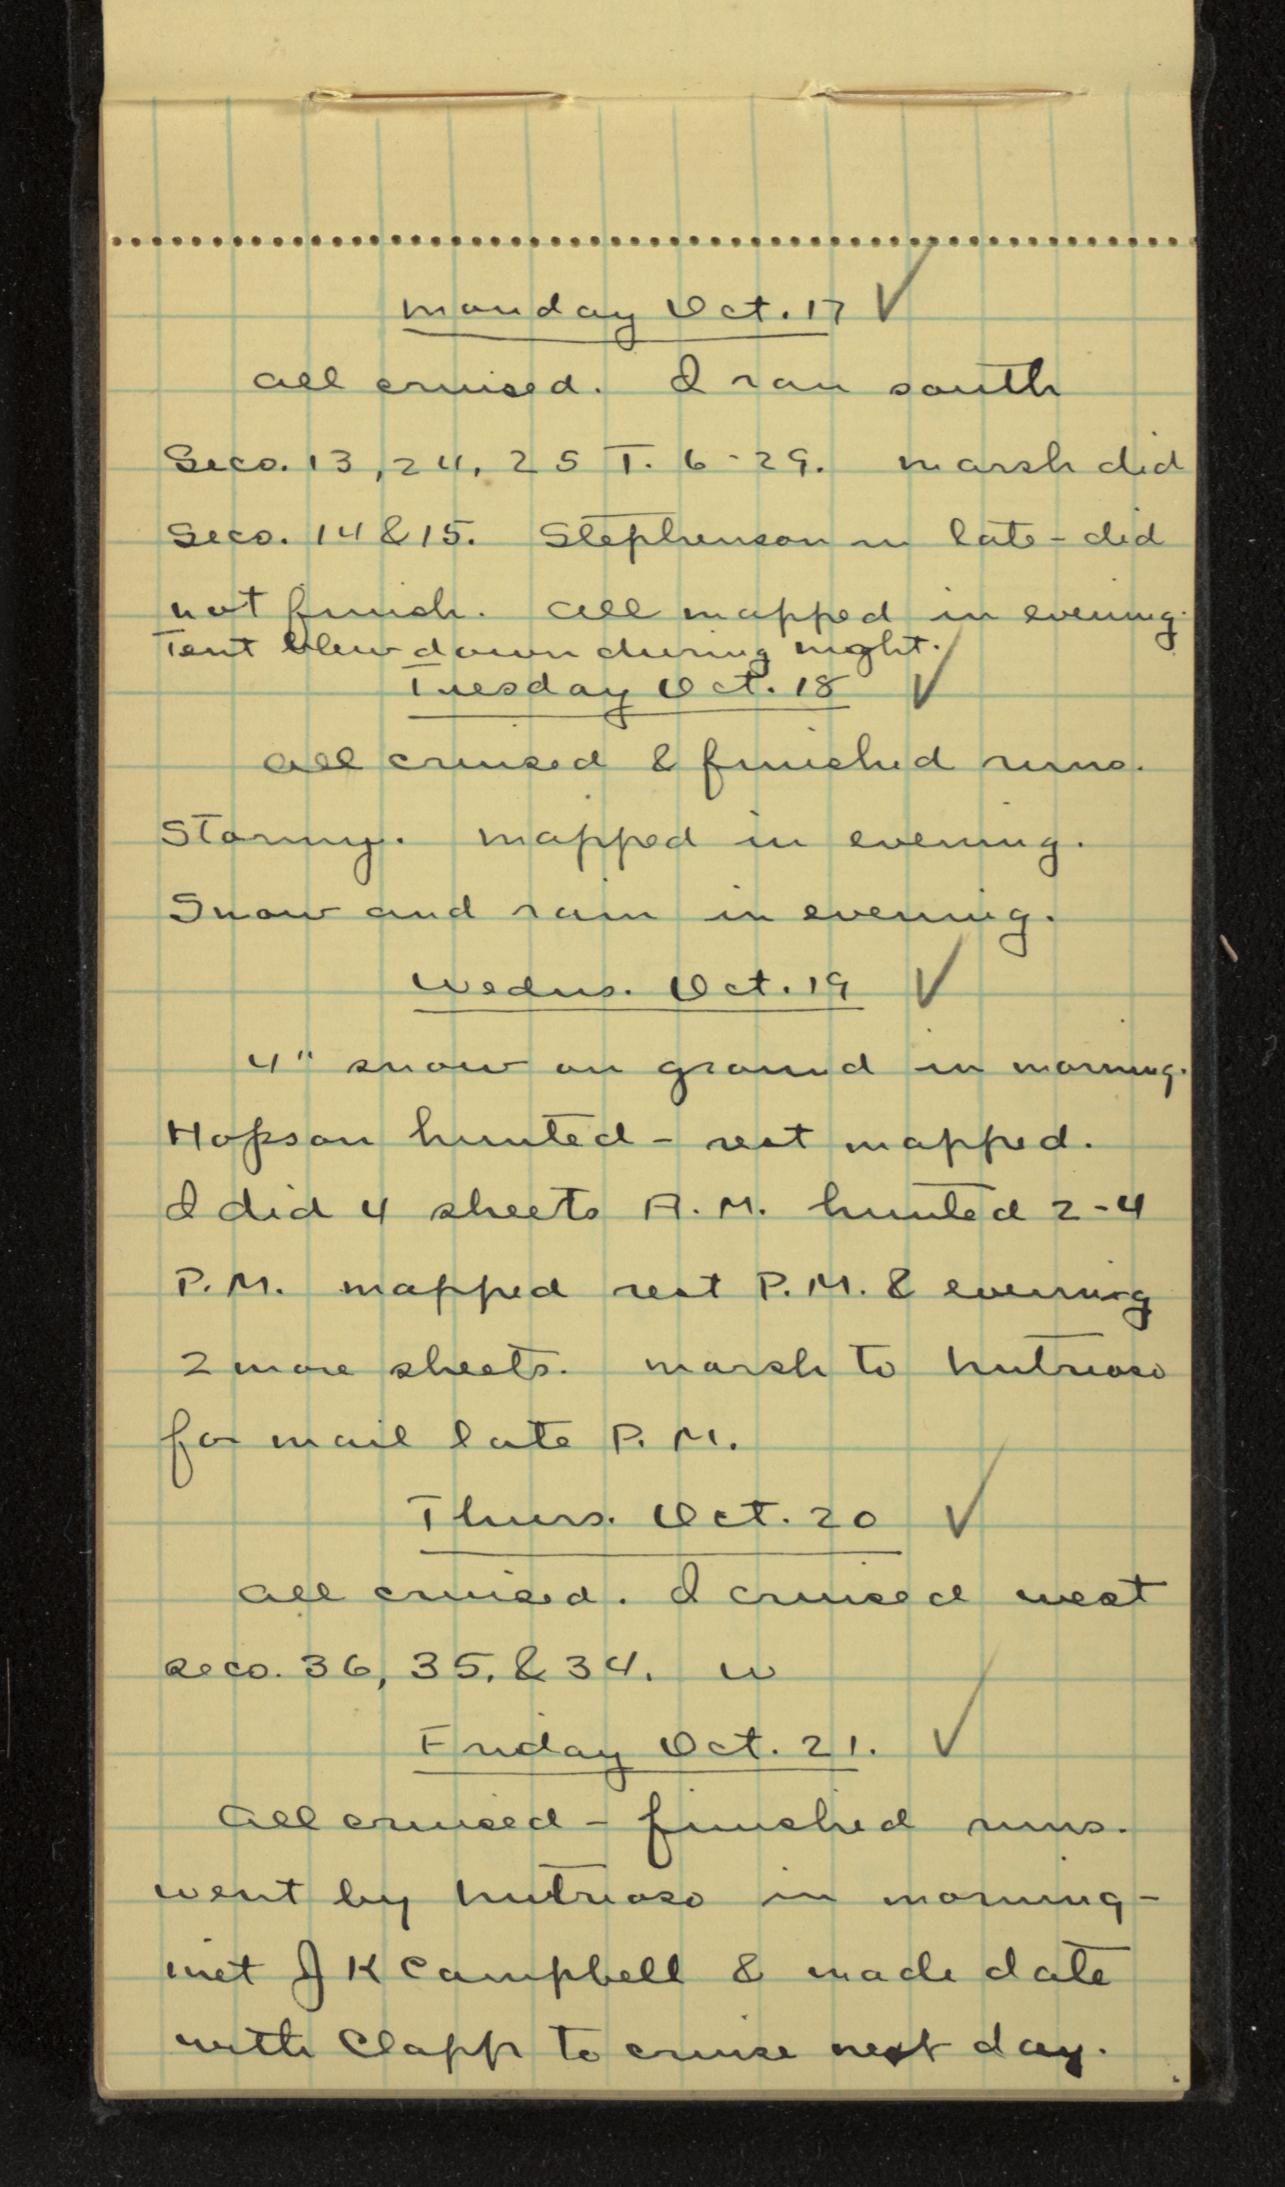 Monday Oct. 17 ✓
All cruised. I ran south
Secs. 13, 24, 25 T. 6-29. Marsh did
Secs. 14 & 15. Stephenson in late - did
not finish. All mapped in evening.
Tent blew down during night.
Tuesday Oct. 18 ✓
All cruised & finished runs.
Stormy. Mapped in evening.
Snow and rain in evening.
Wednes. Oct. 19 ✓
4" snow on ground in morning.
Hopson hunted - rest mapped.
I did 4 sheets A.M. hunted 2-4
P.M. mapped rest P.M. & evening
2 more sheets. Marsh to Nutrioso
for mail late P.M.
Thurs. Oct. 20 ✓
All cruised. I cruised west
secs. 36, 35, & 34. W
Friday Oct. 21. ✓
All cruised - finished runs.
Went by Nutrioso in morning -
met J K Campbell & made date
with Clapp to cruise next day.